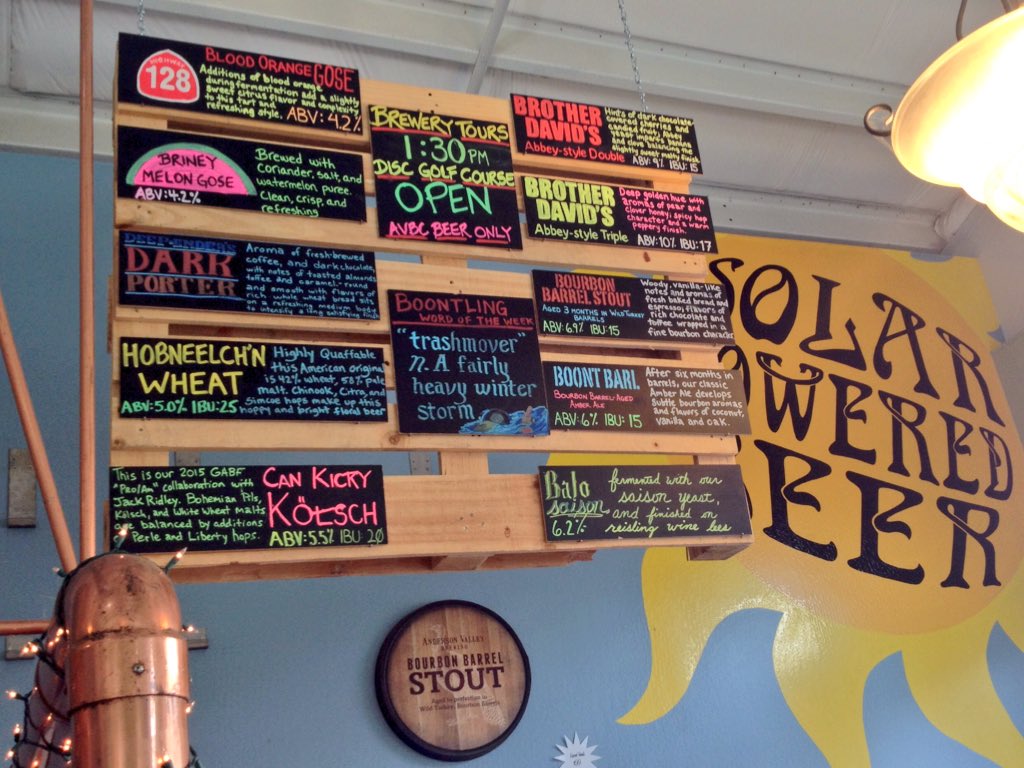 HIGHWAY
128
BLOOD ORANGE GOSE
Additions of blood orange
during fermentation add a slightly
sweet citrus flavor and complexity
to this tart and
refreshing style. ABV: 4.2%
BRINEY
MELON GOSE
ABV:4.2%
Brewed with
Coriander, salt, and
watermelon puree.
Clean, crisp, and
refreshing
DEEP ENDER'S
DARK
PORTER
Aroma of fresh-brewed
coffee, and dark chocolate,
with notes of toasted almonds
toffee and caramel. round
and smooth with flavors of
rich whole wheat bread sits
on a refreshing medium body
to intensify a long satisfying finish
HOBNEELCH'N
WHEAT
ABV:5.0% IBU:25
Highly Quaffable
this American original
is 42% wheat, 58% pale
malt. Chinook, Citra, and
Simcoe hops make up this
hoppy and bright floral beer
This is our 2015 GABF
"Pro/Am" collaboration with
Jack Ridley. Bohemian Pils,
Kolsch, and White Wheat malts
are balanced by additions
of Perle and Liberty hops.
CAN KICKY
KÖLSCH
ABV:5.5% IBU:20
BREWERY TOURS
1:30 PM
DISC GOLF COURSE
OPEN
AVBC BEER ONLY
BOONTLING
WORD OF THE WEEK
"trashmover"
n. A fairly
heavy winter
storm
BROTHER
DAVID'S
Abbey-style Double
Hints of dark chocolate
covered cherries and
candied fruit; Abbey
yeast imparts banana
and clove balancing the
slightly sweet malty finish
ABV: 9% IBU: 15
BROTHER
DAVID'S
Abbey-style Triple
Deep golden hue with
aromas of pear and
clover honey; spicy hop
character and a warm
peppery finish.
ABV:10% IBU:17
BOURBON
BARREL STOUT
AGED 3 MONTHS IN WILD TURKEY
BARRELS
ABV:6.9% IBU:15
Woody, vanilla-like
notes and aromas of
fresh baked bread and
espresso; flavors of
rich chocolate and
toffee wrapped in a
fine bourbon character
BOONT BARL
BOURBON BARREL-AGED
AMBER ALE
ABV: 6% IBU: 15
After six months in
barrels, our classic
Amber Ale develops
subtle bourbon aromas
and flavors of coconut,
vanilla and oak.
Balo
saison
6.2%
fermented with our
saison yeast,
and finished on
reisling wine lees
SOLAR
POWERED
BEER
ANDERSON VALLEY
BREWING
BOURBON BARREL
STOUT
Aged to perfection in
Wild Turkey Bourbon Barrels